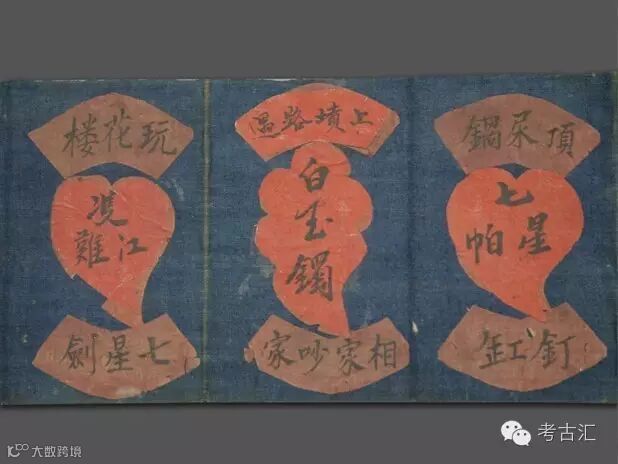 頂尿鍋
七星帕
釘缸
上墳路遇
白玉鐲
相家吵家
玩花楼
江難
七星劍
考古汇
大数跨境